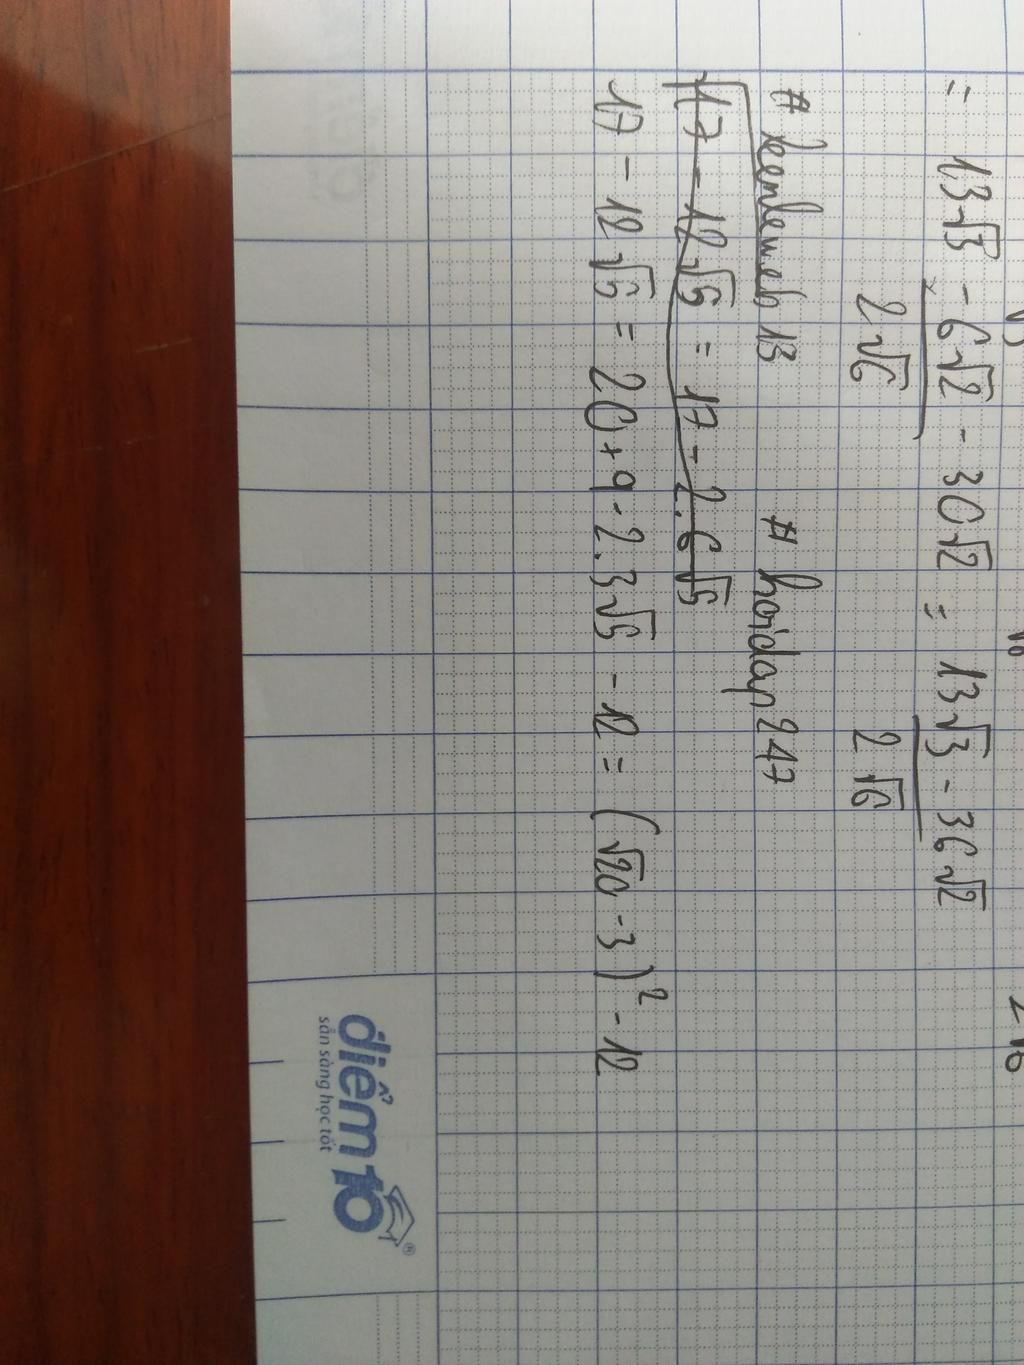 = 13√3 - 6√2 - 30√2 = 13√3 - 36√2
2√6 2√6
# kenlemeb 13 # hoidap247
√17 - 12√5 = 17 - 2.6√5
17 - 12√5 = 20 + 9 - 2.3√5 - 12 = (√20 - 3)² - 12
điểm10®
sẵn sàng học tốt